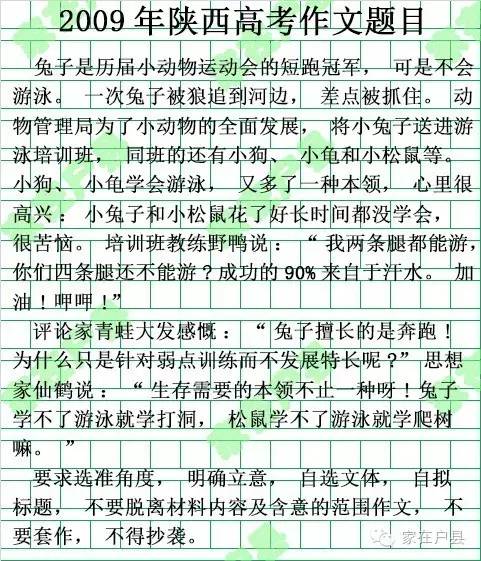 2009年陕西高考作文题目
兔子是历届小动物运动会的短跑冠军， 可是不会
游泳。 一次兔子被狼追到河边， 差点被抓住。 动
物管理局为了小动物的全面发展， 将小兔子送进游
泳培训班， 同班的还有小狗、 小龟和小松鼠等。
小狗、 小龟学会游泳， 又多了一种本领， 心里很
高兴： 小兔子和小松鼠花了好长时间都没学会，
很苦恼。 培训班教练野鸭说： “ 我两条腿都能游，
你们四条腿还不能游？成功的90%来自于汗水。 加
油！呷呷！”
评论家青蛙大发感慨： “ 兔子擅长的是奔跑！
为什么只是针对弱点训练而不发展特长呢？” 思想
家仙鹤说： “ 生存需要的本领不止一种呀！兔子
学不了游泳就学打洞， 松鼠学不了游泳就学爬树
嘛。 ”
要求选准角度， 明确立意， 自选文体， 自拟
标题， 不要脱离材料内容及含意的范围作文， 不
要套作， 不得抄袭。
家在户县